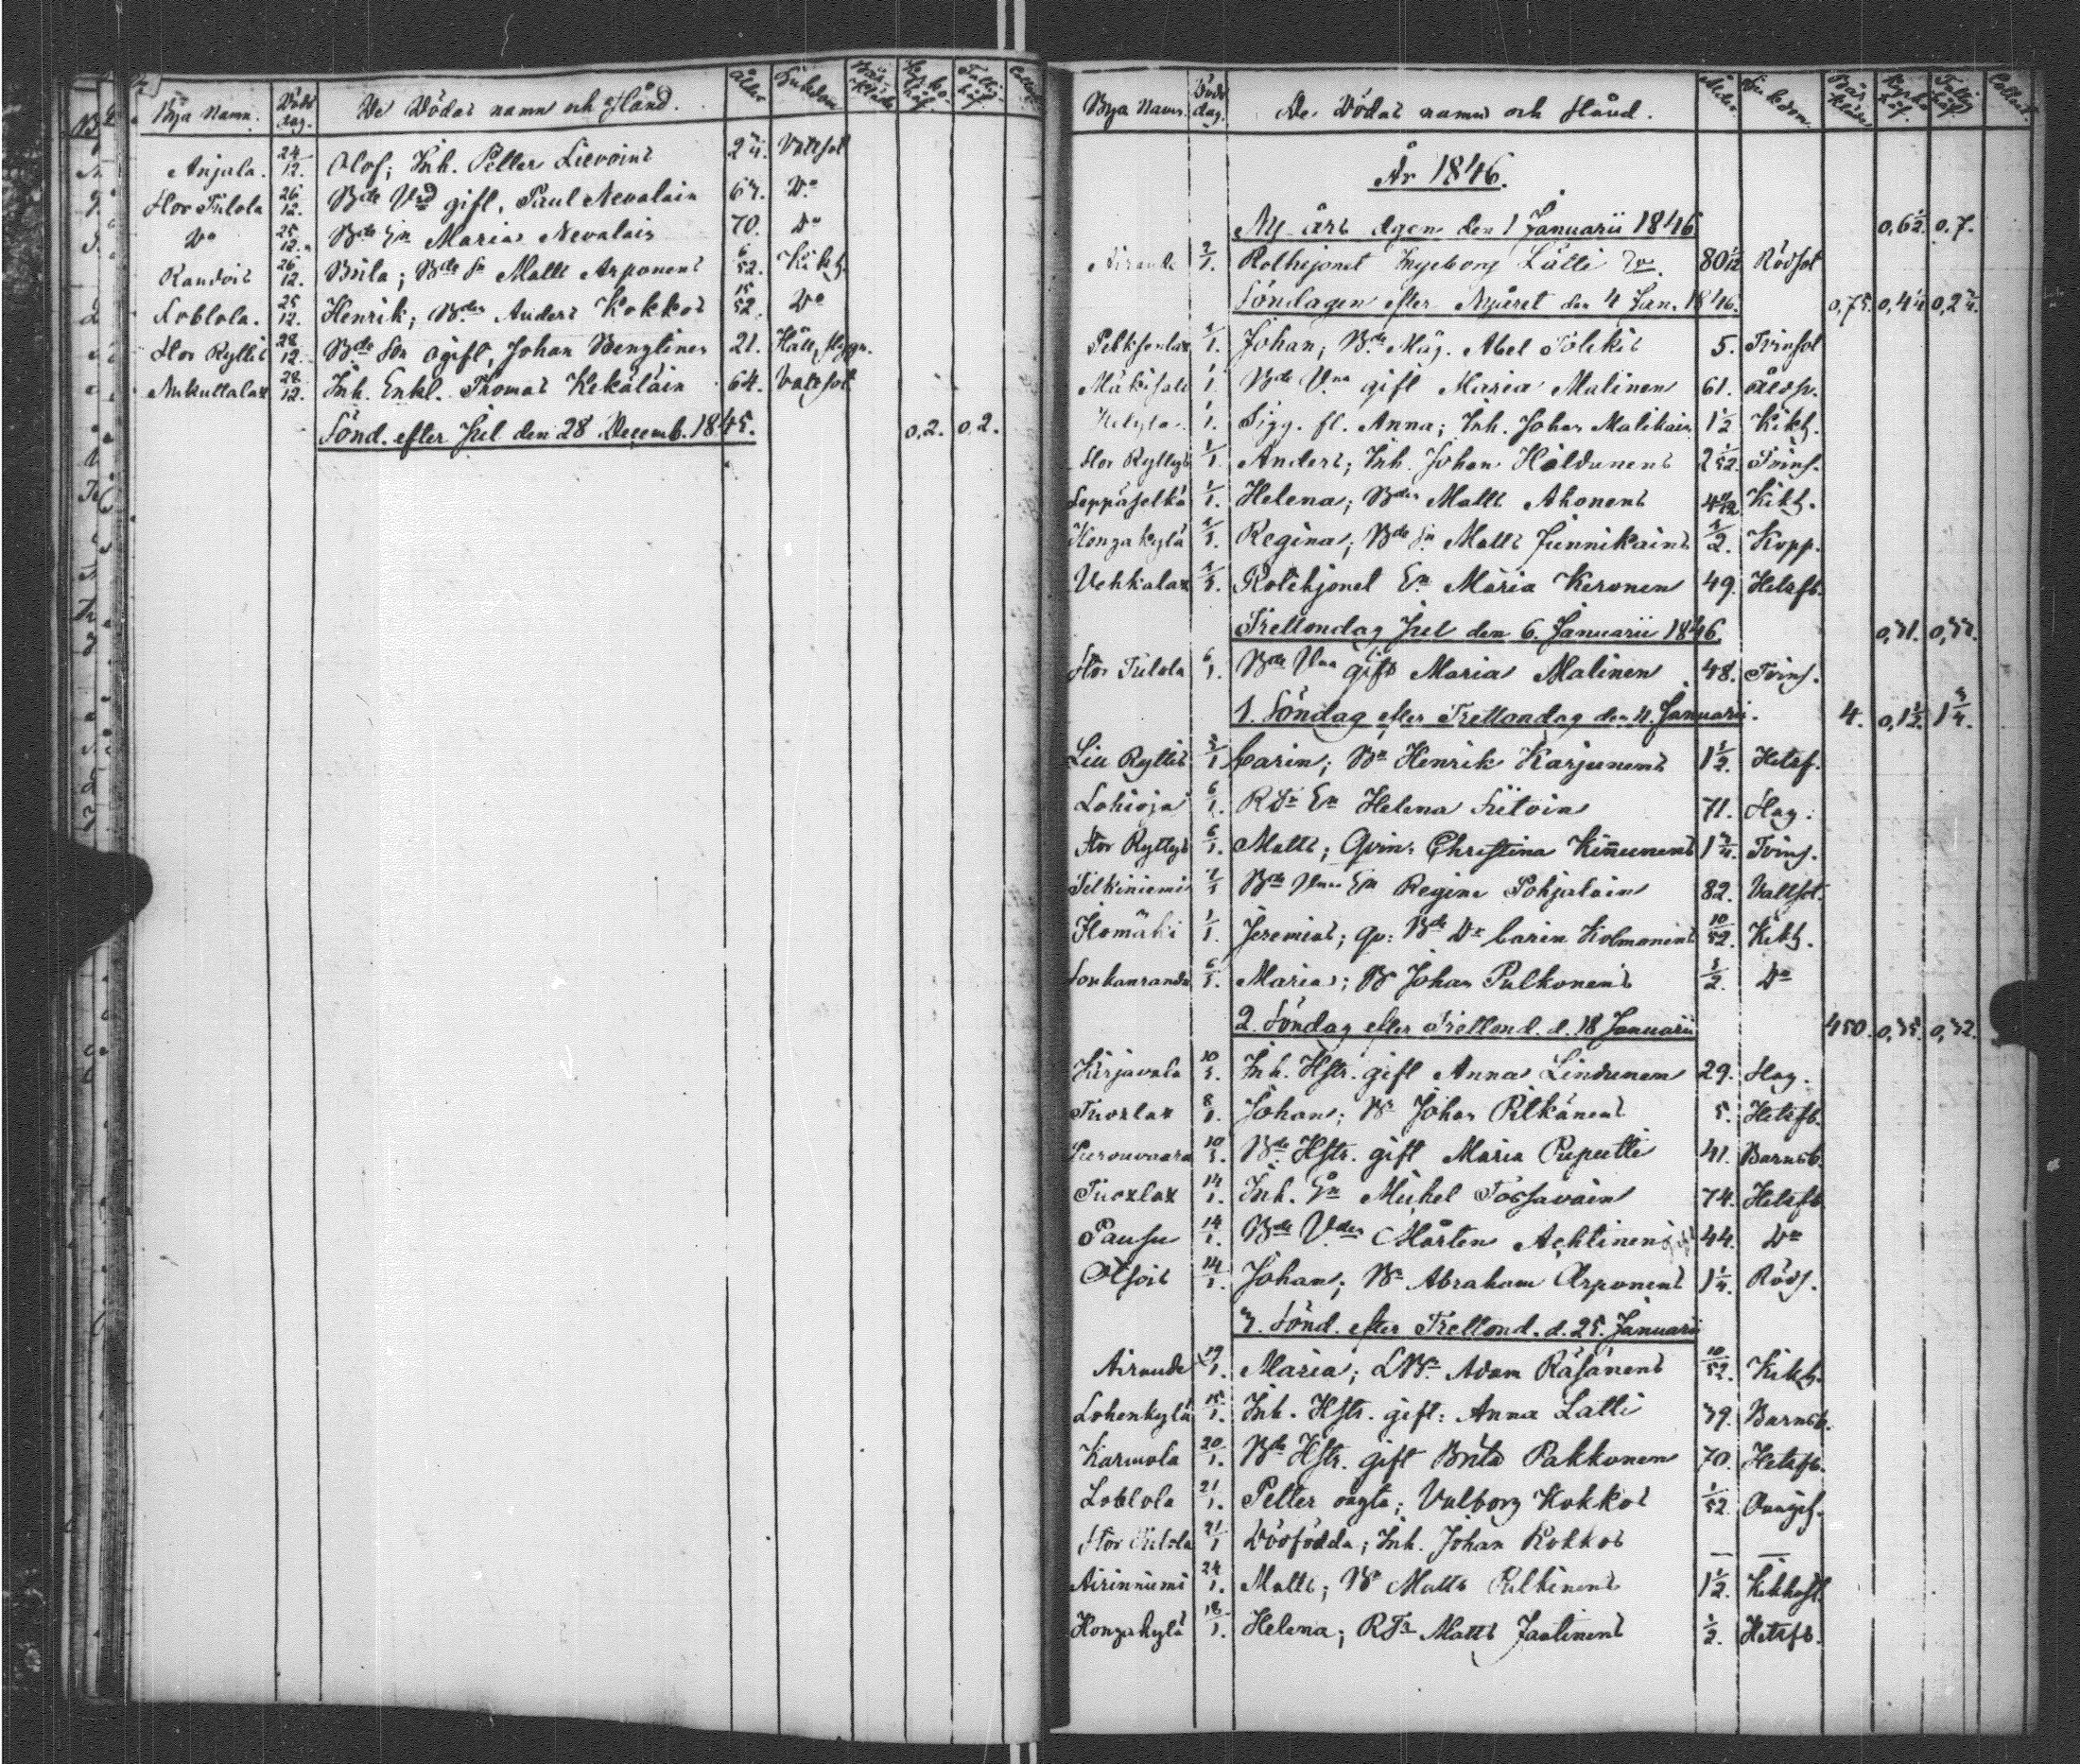 Bya Namn. Död dag. De Dödas namn och stånd. Ålder Sjukdom
Anjala. 24/12. Olof; Inh. Petter Lievoins 2 Vattsot
Stor Tulola 26/12. Bde Vrd gift, Paul Nevalain 67. Do
Do 25/12. Bde En Maria Nevalain 70. Do
Raudois 26/12. Brita; Bde Sn Matts Arponens 6/52. Kikh.
Loblola. 25/12. Henrik; Bdes Anders Kokkos 15/52. Do
Stor Ryttis 28/12. Bde Son ogift, Johan Bengtinen 21. Håll, Hygn.
Mukullalax 28/12. Inh. Enkl. Thomas Kekäläin 64. Vattsot
Sönd. efter Jul den 28 Decemb. 1845. 0,2. 0,2.
Bya Namn. Döds dag. De Dödas namn och stånd. Ålder. Sjukdom. Kyrko håf. Collect.
År 1846.
Ny-års dagen den 1 Januarii 1846 0,6½. 0,7.
2/1. Rothjonet Ingeborg Lätti 80 Rödsot
Söndagen efter Nyåret den 4 Jan. 1846. 0,75. 0,4¼ 0,2¾.
1. Johan; Bde Måg. Abel Tölikis 5. Tvinsot
Mäkisalo 1/1. Bde Vna gift Maria Malinen 61. ålders.
1/1. Tigg. fl. Anna; Inh. Johan Malikain 1½ Kikh.
Stor Ryttys 1/1. Anders; Inh. Johan Holdunens 2/52. Tvins.
Leppäselkä 1/1. Helena; Bdes Matts Ahonens Kikh.
Honga kylä 1. Regina; Bde Sn Matts Junnikains ½. Kopp.
Vehkalax 1. Rotehjonet En Maria Keronen 49. Hetsfb.
Trettondag Jul den 6. Januarii 1846.
Stor Tulola 6/1. Bde Vna gift Maria Malinen 48. Tvins.
1. Söndag efter Trettondag den 11. Januarii. 4. 0,1½. 1¾.
Lill Ryttis 1. Carin; Bn Henrik Karjunens 1½. Hetsf.
Lohioja 6/1. RSn En Helena Siitoin 71. Hag.
Stor Ryttys 6/1. Matts; Qvin: Christina Kinnunens 1¾. Tvins.
Telkiniemi 1. Bde Vna En Regina Pohjalain 82. Vattsot.
Ilomäki 1/1. Jeremias; Qv: Bde Dr Carin Kolmonens 10/52. Kikh.
Sorkanranda 6/1. Maria; B Johan Pulkonens ½. Do
2. Söndag efter Trettond. d. 18 Januarii 450. 0,35. 0,32.
Kirjavala 10/1. Inh. Hstr. gift Anna Lindunen 29. Hag.
Tuoxlax 8/1. Johan; Bn Johan Pitkänens 5. Hetsfb.
10/1. Bde Hstr. gift Maria Puputti 41. Barnsb.
Tuoxlax 14/1. Inh. En Michel Torsavain 74. Hetsfb.
Pausu 14/1. Bde Vdes Mårten Achtinen 44. Do
Otsois 14/1. Johan; Bn Abraham Arponens 1¼. Röds.
3. Sönd. efter Trettond. d. 25. Januarii
Airanda 19/1. Maria; LBn Adam Räsänens 10/52. Kikh.
Lohenkylä 15/1. Inh. Hstr. gift: Anna Lätti 39. Barnsb.
Karmola 20/1. Bde Hstr. gift Brita Pakkonen 70. Hetsfb.
Loblola 21/1. Petter oägta; Valborg Kokkos 1/52.
Stor Tulola 21/1 Dödfödda; Inh. Johan Kokkos — —
Airinniemi 24/1. Matts; Bn Matts Pulkinens 1½. Kikhost.
Hongakylä 18/1. Helena; RTn Matts Jaatinens ½. Hetsfb.